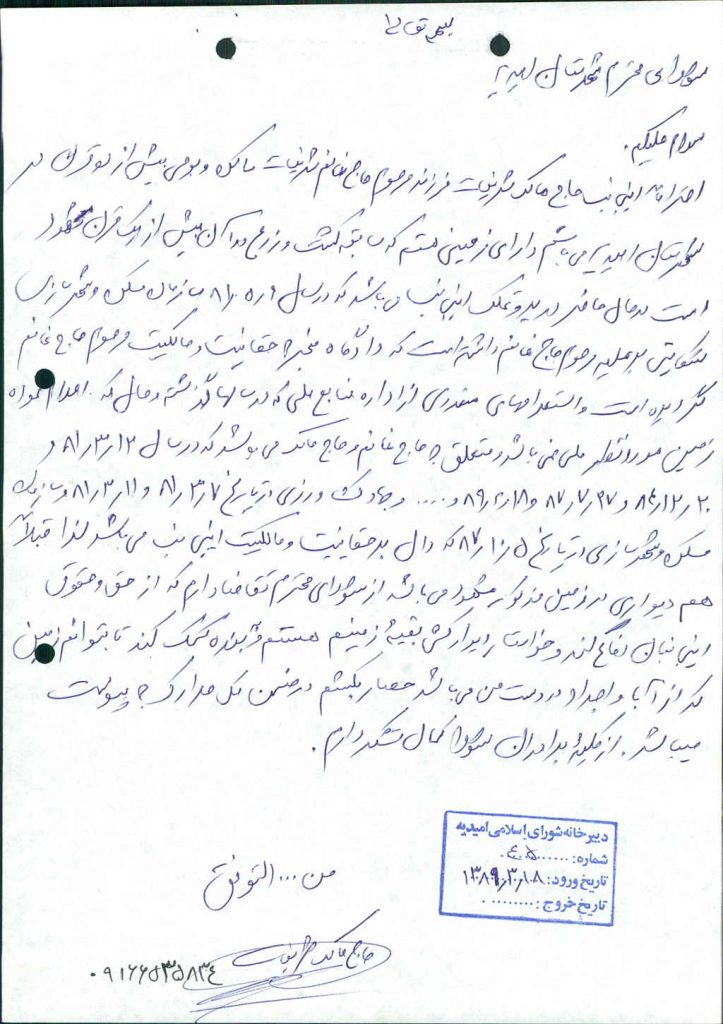 بسمه تعالی
شورای محترم شهرستان امیدیه
سلام علیکم.
احتراماً اینجانب حاج مالک شریفات فرزند مرحوم حاج غانم شریفات مالک و بومی بیش از دو قرن در
شهرستان امیدیه می باشم دارای زمینی هستم که سابقه کشت و زرع در آن بیش از یک قرن مشهود
است در حال حاضر در ید و تملک اینجانب می باشد که در سال سازمان مسکن و شهرسازی
شکایتی بر علیه مرحوم حاج غانم داشته است که دادگاه منجر به حقانیت و مالکیت مرحوم حاج غانم
گردیده است و استعلامهای متعددی از اداره منابع ملی که در سالهای گذشته و حال که اعلام نموده
زمین مورد نظر ملی نمی باشد و متعلق به حاج غانم و حاج مالک می باشد که در سال ۸۱٫۳٫۱۲ و
۸۴٫۱۲٫۲۰ و ۸۷٫۷٫۲۷ و و .... و جهاد کشاورزی در تاریخ ۸۱٫۳٫۷ و ۸۱٫۳٫۱۱ و سازمان
مسکن و شهرسازی در تاریخ ۸۷٫۱٫۵ که دال بر حقانیت و مالکیت اینجانب می باشد لذا قبلاً
هم دیواری در زمین مذکور مشهود می باشد از شورای محترم تقاضا دارم که از حق و حقوق
اینجانب دفاع کند و خواستار دیوارکشی بقیهٔ زمینم هستم به بنده کمک کند تا بتوانم زمین
که از آبا و اجداد در دست من می باشد حصار بکشم در ضمن کل مدارک به پیوست
میباشد. از کلیهٔ برادران شورا کمال تشکر دارم.
من ... التوفیق
حاج مالک شریفات
۰۹۱۶۶۵۳۵۸۳۴
دبیرخانه شورای اسلامی امیدیه
شماره: ......۴۰۵.
تاریخ ورود: ۱۳۸۹٫۳٫۰۸
تاریخ خروج: .........